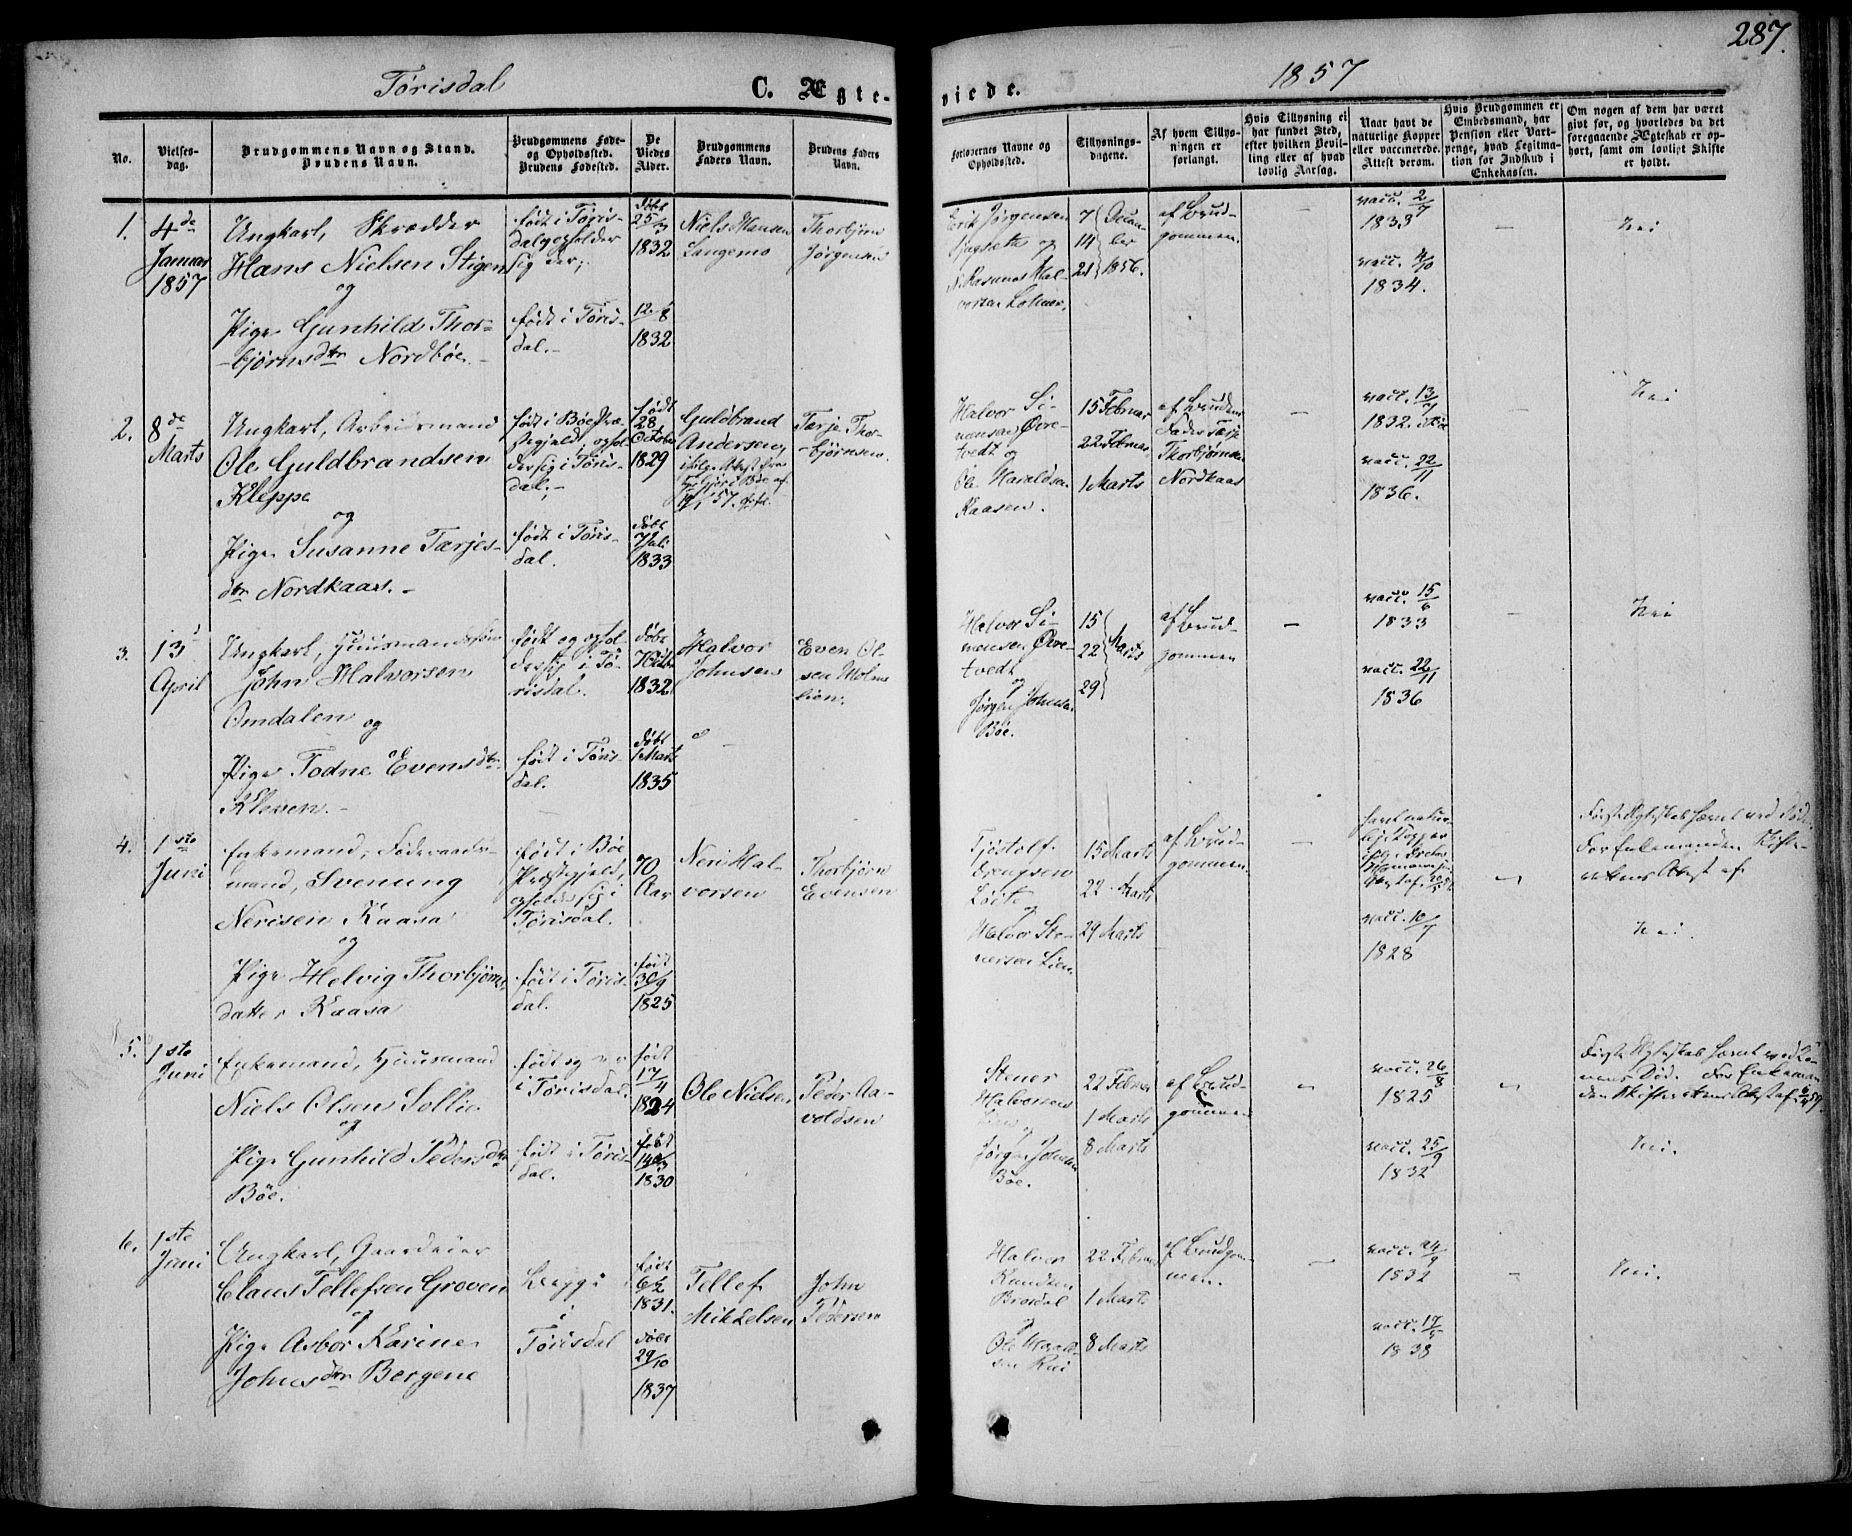 287.
Tørisdal
C. Ægte-
viede.
1857
No.
Vielses-
dag.
Brudgommens Navn og Stand.
Brudens Navn.
Brudgommens Føde-
og Opholdssted.
Brudens Fødested.
De
Viedes
Alder.
Brudgommens
Faders Navn.
Brudens Faders
Navn.
Forlovernes Navne og
Opholdssted.
Tillysnings-
dagene.
Af hvem Tillys-
ningen er
forlangt.
Hvis Tillysning ei
har fundet Sted,
efter hvilken Bevil-
ling eller af hvad
lovlig Aarsag.
Naar havt de
naturlige Kopper
eller vaccinerede.
Attest derom.
Hvis Brudgommen er
Embedsmand, har
Pension eller Vart-
penge, hvad Legitima-
tion for Indskud i
Enkekassen.
Om nogen af dem har været
gift før, og hvorledes da det
foregaaende Ægteskab er op-
hørt, samt om lovligt Skifte
er holdt.
1.
4de
Januar
1857
Ungkarl, Skrædder
Hans Nielsen Stigen
og
Pige Gunhild Thor-
bjørnsdtr Nordbøe.
født i Tøris-
dal, opholder
sig der;
født i Tøris-
dal.
døbt
25/3
1832
12/8
1832
Niels Hansen
Langemo
Thorbjørn
Jørgensen
Erik Jørgensen
og
7
14
21
Decem-
ber
1856.
af Brud-
gommen.
–
vacc. 2/7
1833
vacc. 4/10
1834.
–
Nei
2.
8de
Marts
Ungkarl, Arbeidsmand
Ole Guldbrandsen
Kleppe
og
Pige Susanne Tærjes-
dtr Nordkaas.
født i Bøe Præ-
stegjeld, ophol-
der sig i Tøris-
dal;
født i Tøris-
dal.
født
28
October
1829
døbt
7 Juli
1833
Guldbrand
Andersen,
Tærje Thor-
bjørnsen.
Halvor Si-
monsen Øvre-
tvedt og
Ole Haraldsen
Kaasen.
15 Februar
22 Februar
1 Marts
af Brudens
Fader Tærje
Thorbjørnsen
Nordkaas
–
vacc. 13/7
1832.
vacc. 22/11
1836.
–
Nei
3.
13
April
Ungkarl, Huusmandssøn
John Halvorsen
Omdalen og
Pige Todne Evensdtr
Kleven.
født og ophol-
der sig i Tø-
risdal.
født i Tøris-
dal.
døbt
7 Octbr
1832
døbt
1 Marts
1835
Halvor
Johnsen
Even Ol-
sen Holm-
Halvor Si-
monsen Øvre-
tvedt
og
Jørgen Johnsen
Bøe.
15
22
29
Marts
af Brud-
gommen
–
vacc. 15/6
1833
vacc. 22/11
1836
–
Nei
4.
1ste
Juni
Enkemand, Føderaads-
mand, Svenung
Nerisen Kaasa
og
Pige Helvig Thorbjørns-
datter Kaasa
født i Bøe
Præstegjeld,
opholder sig i
Tørisdal.
født i Tøris-
dal.
70
Aar
født
30/9
1825
Neri Hal-
vorsen
Thorbjørn
Evensen
Tjøstolf
og
Halvor Ste-
nersen Lien
15 Marts
22 Marts
29 Marts
af Brud-
gommen
–
vacc. 10/7
1828
–
Nei.
5.
1ste
Juni
Enkemand, Huusmand
Niels Olsen Sollie
og
Pige Gunhild Pedersdtr
Bøe.
født og
i Tørisdal.
født i Tøris-
dal.
født
17/4
1824
født
14/3
1830
Ole Nielsen
Peder Aa-
voldsen
Stener
Halvorsen
og
Jørgen Johnsen
Bøe.
22 Februar
1 Marts
8 Marts
af Brud-
gommen
–
vacc. 26/8
1825
vacc. 25/9
1832
–
Nei.
6.
1ste
Juni
Ungkarl, Gaardeier
Claus Tellefsen Groven
og
Pige Asbør Karine
Johnsdtr Bergene
Begge
i
Tørisdal
født
6/2
1831.
døbt
29/10
1837
Tellef
Mikkelsen
John
Pedersen
Halvor
Knudsen
Brosdal
og
22 Februar
1 Marts
8 Marts
af Brudgom-
men.
–
vacc. 24/9
1832
vacc. 17/5
1838
–
Nei.